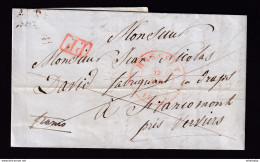 Monsieur
P.P.
Monsieur Jean Nicolas
David fabriquant en draps
à Francomont
franco
près Verviers